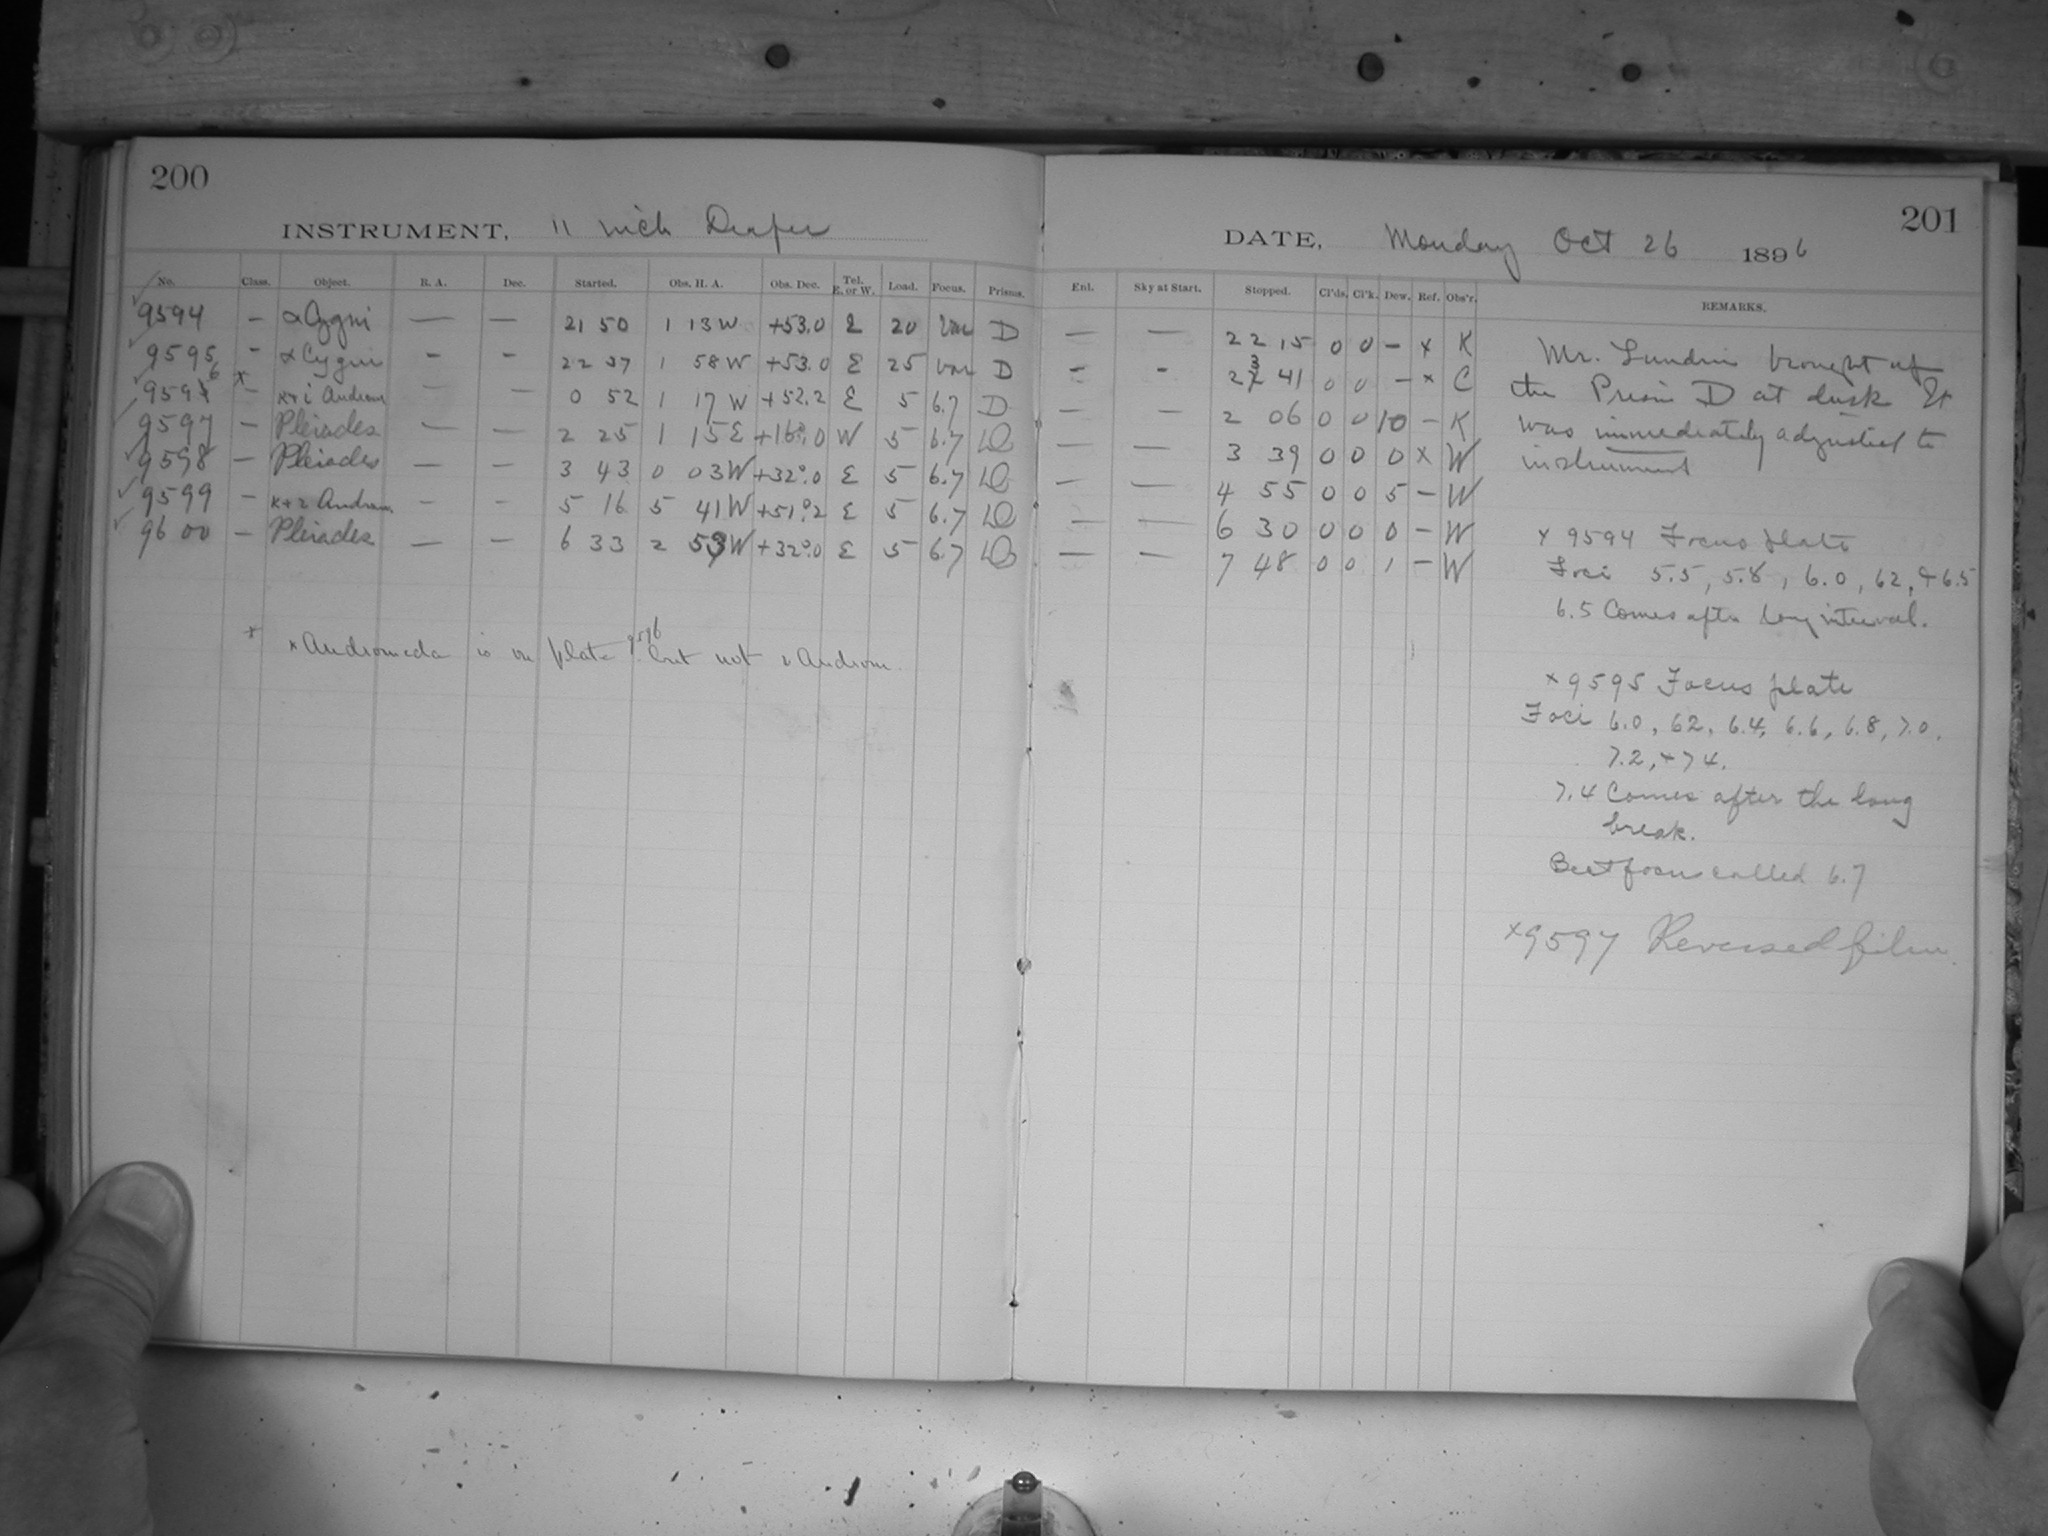 200
INSTRUMENT, 11 inch Draper
No. Class. Object. R. A. Dec. Started. Obs. H. A. Obs. Dec. Tel. E. or W. Load. Focus. Prisms.
9594 — α Cygni — — 21 50 1 13 W +53.0 E 20 Var D
9595 - α Cygni - - 22 37 1 58 W +53.0 E 25 var D
9596 x — κ+ι Androm — — 0 52 1 17 W +52.2 E 5 6.7 D
9597 — Pleiades — — 2 25 1 15 E +16°.0 W 5 6.7 D
9598 — Pleiades — — 3 43 0 03 W +32°.0 E 5 6.7 D
9599 - κ+ι Androm - - 5 16 5 41 W +51°.2 E 5 6.7 D
9600 — Pleiades — — 6 33 2 53 W +32°.0 E 5 6.7 D
x κ Andromeda is on plate 9596 but not ι Androm.
201
DATE, Monday Oct 26 1896
Enl. Sky at Start. Stopped. Cl'ds. Cl'k. Dew. Ref. Obs'r. REMARKS.
— — 22 15 0 0 - x K
- - 23 41 0 0 - x C
— — 2 06 0 0 10 - K
— — 3 39 0 0 0 x W
— — 4 55 0 0 5 - W
— — 6 30 0 0 0 - W
— — 7 48 0 0 1 - W
Mr. Lundin brought up
the Prism D at dusk It
was immediately adjusted to
instrument
x 9594 Focus plate
Foci 5.5, 5.8, 6.0, 62, & 6.5
6.5 Comes after long interval.
x 9595 Focus plate
Foci 6.0, 62, 6.4, 6.6, 6.8, 7.0,
7.2, + 74.
7.4 Comes after the long
break.
Best focus called 6.7
x 9597 Reversed film.